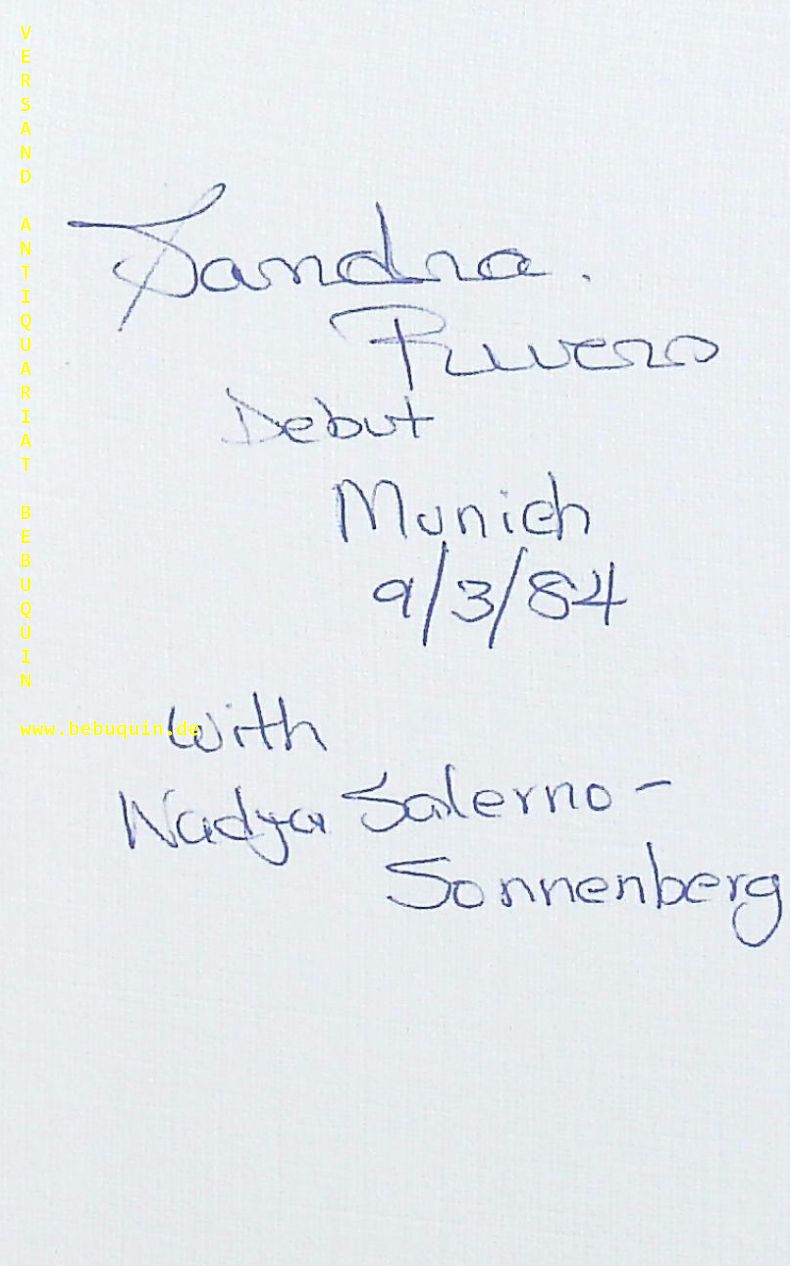 VERSAND ANTIQUARIAT BEBUQUIN
www.bebuquin.de
Sandra.
Rivers
Debut
Munich
9/3/84
With
Nadya Salerno-
Sonnenberg